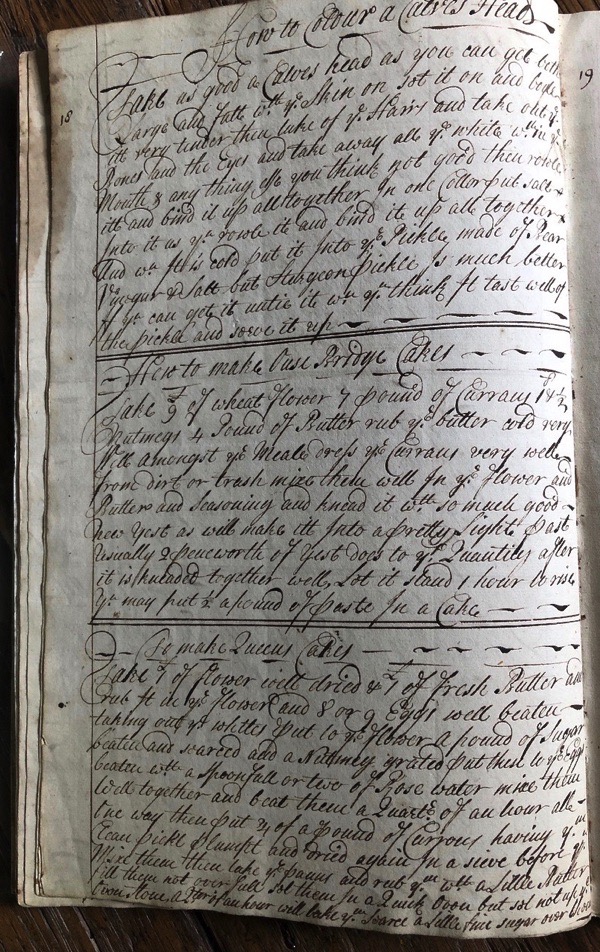 18
19
How to Colour a Calves Head
Take as good a Calves head as you can get both
Large and fatt wth ye Skin on sot it on and boyle
itt very tender then take of ye Hairs and take out ye
Bones and the Eyes and take away all ye white wth in ye
Mouth & any thing else you think not good then rowle
itt and bind it up alltogether In one Coller put salt
Into it as yu rowle it and bind it up all together
And wn It is cold put it Into ye Pickle made of Bear
Vinegar & Salt but Sturgeon Pickle Is much better
If yu can get it untie it wn yu think It tast well of
the pickle and serve it up
How to make Ouse Bridge Cakes
Take 9 of wheat flower 7 pound of Currans 1 & 1/2
Nutmegs 4 Pound of Butter rub ye butter cold very
Well Amongst ye Meale dress ye Currans very well
from dirt or trash mixe them well In ye flower and
Butter and Seasoning and knead it wth so much good
new Yest as will make itt Into a pretty Light Past
usually 2 peneworth of Yest does to ys Quantity after
it is kneaded together well Let it stand 1 hour to rise
Yu may put 1/2 a pound of paste In a Cake
To make Queens Cakes
Take of flower well dried & 1 of fresh Butter and
rub It in ye flower and 8 or 9 Eggs well beaten
taking out ye whittes put to ye flower a pound of Sugar
beaten and searced add a Nutmeg grated put then to ye Eggs
beaten wth a Spoonfull or two of Rose water mixe them
Well together and beat them a Quarter of an hour all
One way then put of a pound of Currons having ym
Clean pickt and dried again In a sieve before yu
Mixe them then take ye panns and rub ym wth a Little Butter
fill them not over full Set them In a Quick Oven but set not up ye
Oven stone of an hour will bake ym Searce a Little fine sugar over them